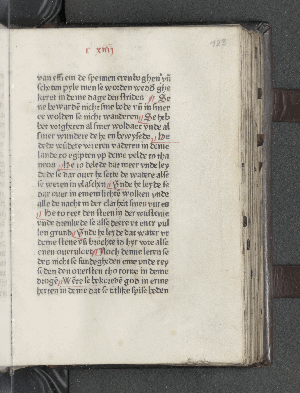 r xiiij
128
van effi em de spennen ern boghen vñ
scheten pyle men se worden wedd' ghe
keret in deme daghe des strides Se
ne bewarden nicht sine bode vñ in siner
ee wolden se nicht wanderen Se heb
ben vorgheten al siner woldaet vnde al
siner wundere de he en bewysede He
dede wūdere vor eren vaderen in deme
lande to egipten vp deme velde to tha
neos He to delede dat meer vnde ley
dede se dar ouer he sette de watere alse
se weren in vlaschen Vnde he leyde se
dar ouer in eneme lichtē wolken vnde
alle de nacht in der clarheit sines vures
He to reet den steen in der wustenie
vnde drenkede se alse deere vt ener vul
len grunt Vnde he leyde dat water vt
deme stene vñ brochte id her vore alse
enen ouervlot Noch denne leten se
des nicht se sundegheden eme vnde rey
seden den ouersten tho torne in deme
droge Wēte se bekoreden god in erme
herten in deme dat se etlike spise beden